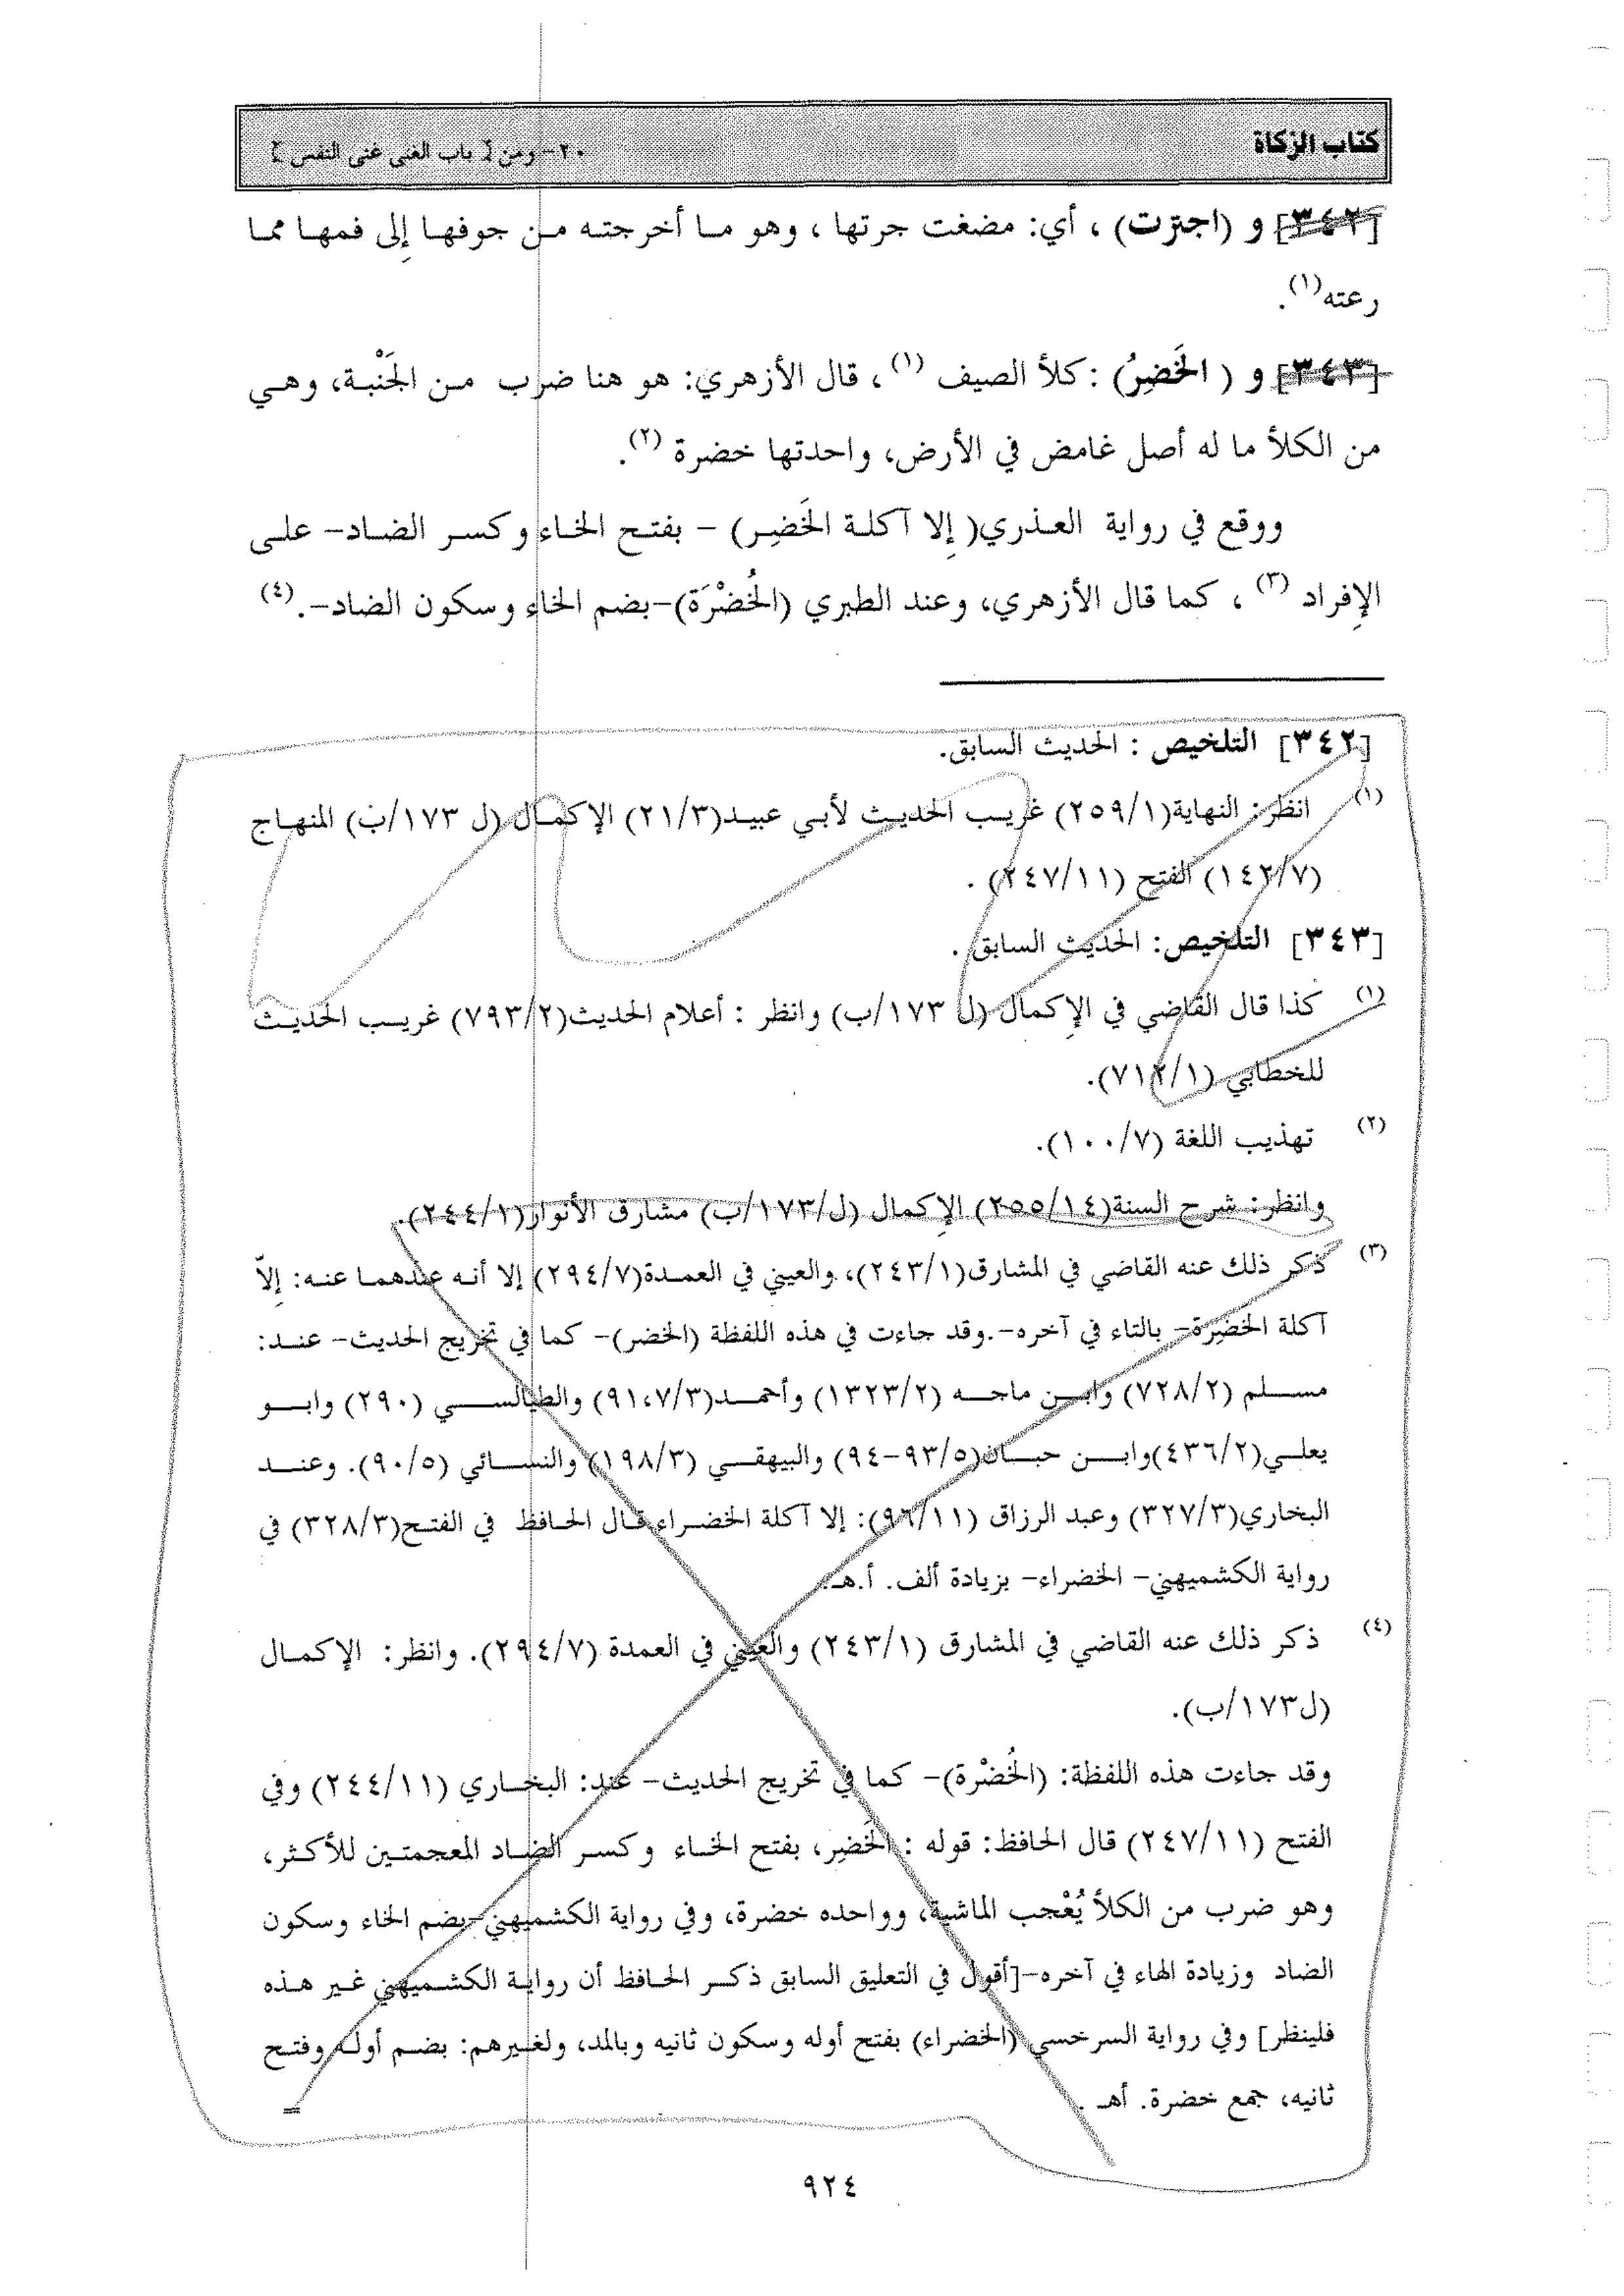 كتاب الزكاة
٢٠- ومن [ باب الغنى غنى النفس ]
[٣٤٢] و (اجترت) ، أي: مضغت جرتها ، وهو ما أخرجته من جوفها إِلى فمها مما
رعته(١).
[٣٤٣] و ( الخَضِرُ) : كلأ الصيف (١) ، قال الأزهري: هو هنا ضرب من الجَنْبة، وهي
من الكلأ ما له أصل غامض في الأرض، واحدتها خضرة (٢).
ووقع في رواية العذري( إِلا آكلة الخَضِر) - بفتح الخاء وكسر الضاد- على
الإِفراد (٣) ، كما قال الأزهري، وعند الطبري (الخُضْرَة)-بضم الخاء وسكون الضاد-.(٤)
[٣٤٢] التلخيص : الحديث السابق.
(١) انظر: النهاية(٢٥٩/١) غريب الحديث لأبي عبيد(٢١/٣) الإكمال (ل ١٧٣/ب) المنهاج
(١٤٢/٧) الفتح (٢٤٧/١١) .
[٣٤٣] التلخيص: الحديث السابق .
(١) كذا قال القاضي في الإِكمال (ل ١٧٣/ب) وانظر : أعلام الحديث(٧٩٣/٢) غريب الحديث
للخطابي (٧١٢/١).
(٢) تهذيب اللغة (١٠٠/٧).
وانظر: شرح السنة(٢٥٥/١٤) الإِكمال (ل/١٧٣/ب) مشارق الأنوار(٢٤٤/١).
(٣) ذكر ذلك عنه القاضي في المشارق(٢٤٣/١)، والعيني في العمدة(٢٩٤/٧) إلا أنه عندهما عنه: إِلاّ
آكلة الخضِرة- بالتاء في آخره-.وقد جاءت في هذه اللفظة (الخضر)- كما في تخريج الحديث- عند:
مسلم (٧٢٨/٢) وابن ماجه (١٣٢٣/٢) وأحمد(٩١،٧/٣) والطيالسي (٢٩٠) وابو
يعلي(٤٣٦/٢)وابن حبان(٩٣/٥-٩٤) والبيهقي (١٩٨/٣) والنسائي (٩٠/٥). وعند
البخاري(٣٢٧/٣) وعبد الرزاق (٩٦/١١): إلا آكلة الخضراء قال الحافظ في الفتح(٣٢٨/٣) في
رواية الكشميهني- الخضراء- بزيادة ألف. أ.هـ.
(٤) ذكر ذلك عنه القاضي في المشارق (٢٤٣/١) والعيني في العمدة (٢٩٤/٧). وانظر: الإكمال
(ل١٧٣/ب).
وقد جاءت هذه اللفظة: (الخُضْرة)- كما في تخريج الحديث- عند: البخاري (٢٤٤/١١) وفي
الفتح (٢٤٧/١١) قال الحافظ: قوله : الخَضِر، بفتح الخاء وكسر الضاد المعجمتين للأكثر،
وهو ضرب من الكلأ يُعْجب الماشية، وواحده خضرة، وفي رواية الكشميهني-بضم الخاء وسكون
الضاد وزيادة الهاء في آخره-[أقول في التعليق السابق ذكر الحافظ أن رواية الكشميهني غير هذه
فلينظر] وفي رواية السرخسي (الخضراء) بفتح أوله وسكون ثانيه وبالمد، ولغيرهم: بضم أوله وفتح
ثانيه، جمع خضرة. أهـ .
٩٢٤